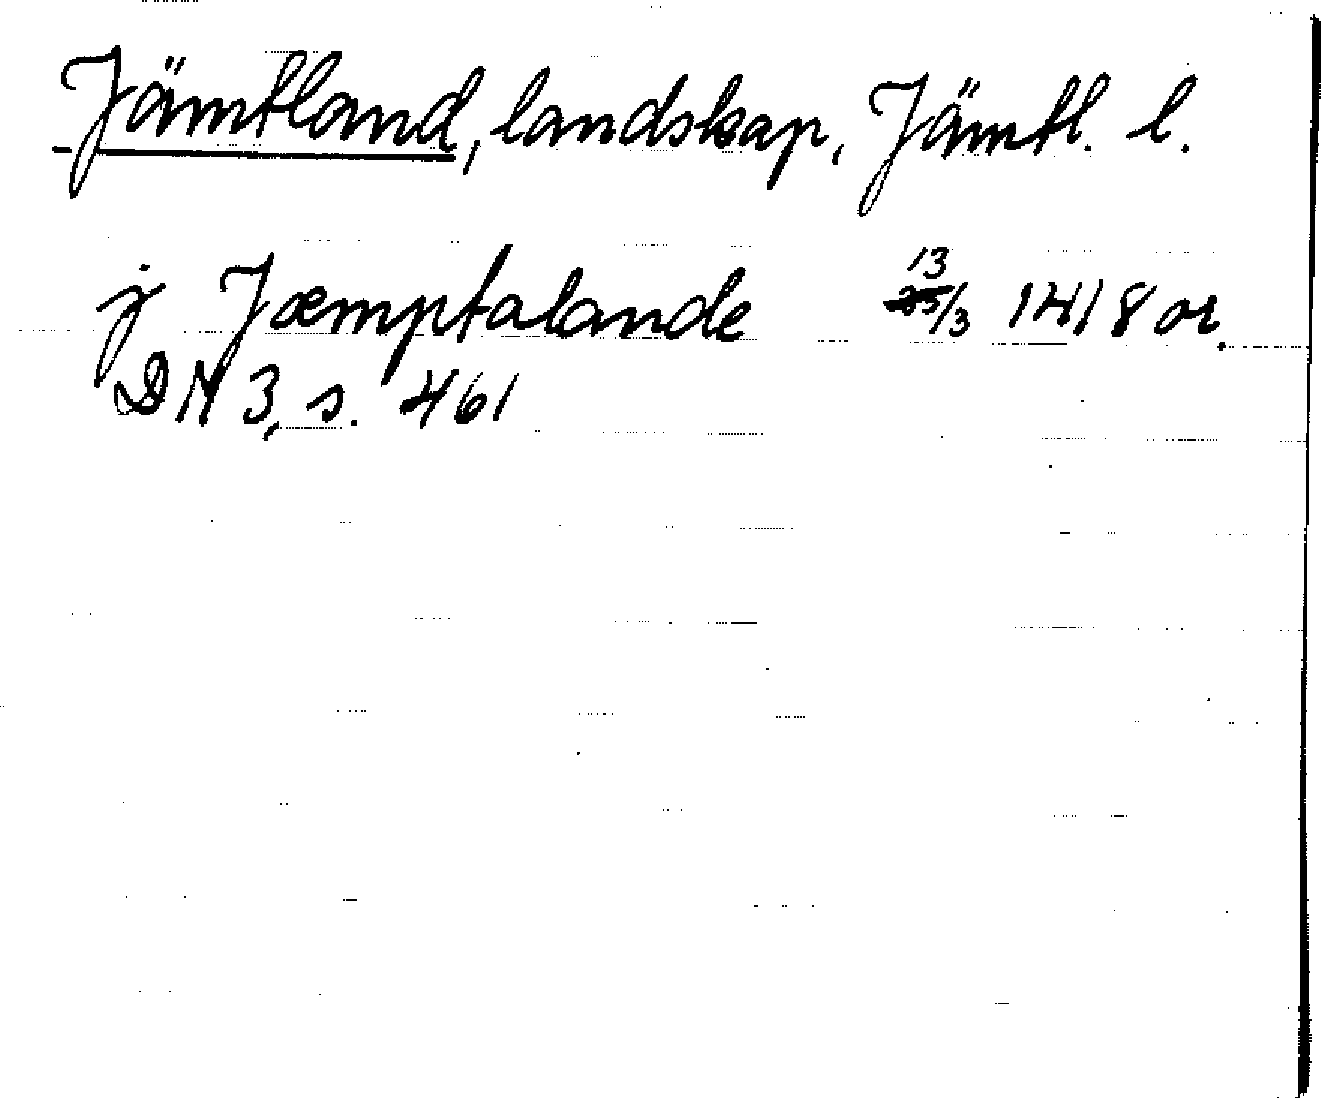 Jämtland, landskap, Jämtl. l.
j Jæmptalande 13/3 1418 or.
DN 3, s. 461